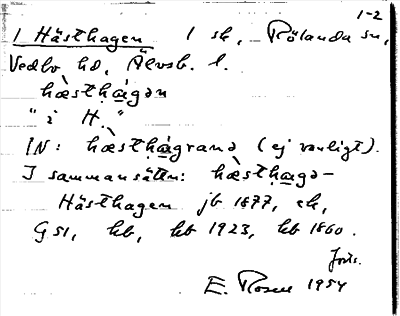 1-2
1 Hästhagen 1 sk, Rölanda sn,
Vedbo hd, Älvsb. l.
hæ̀sthɑ̣gən
"i H."
IN: hæ̀sthɑ̣granə (ej vanligt).
I sammansättn: hæ̀sthɑ̣gə-
Hästhagen jb 1877, ek,
GS1, hb, hb 1923, hb 1860.
E. Rosell 1954